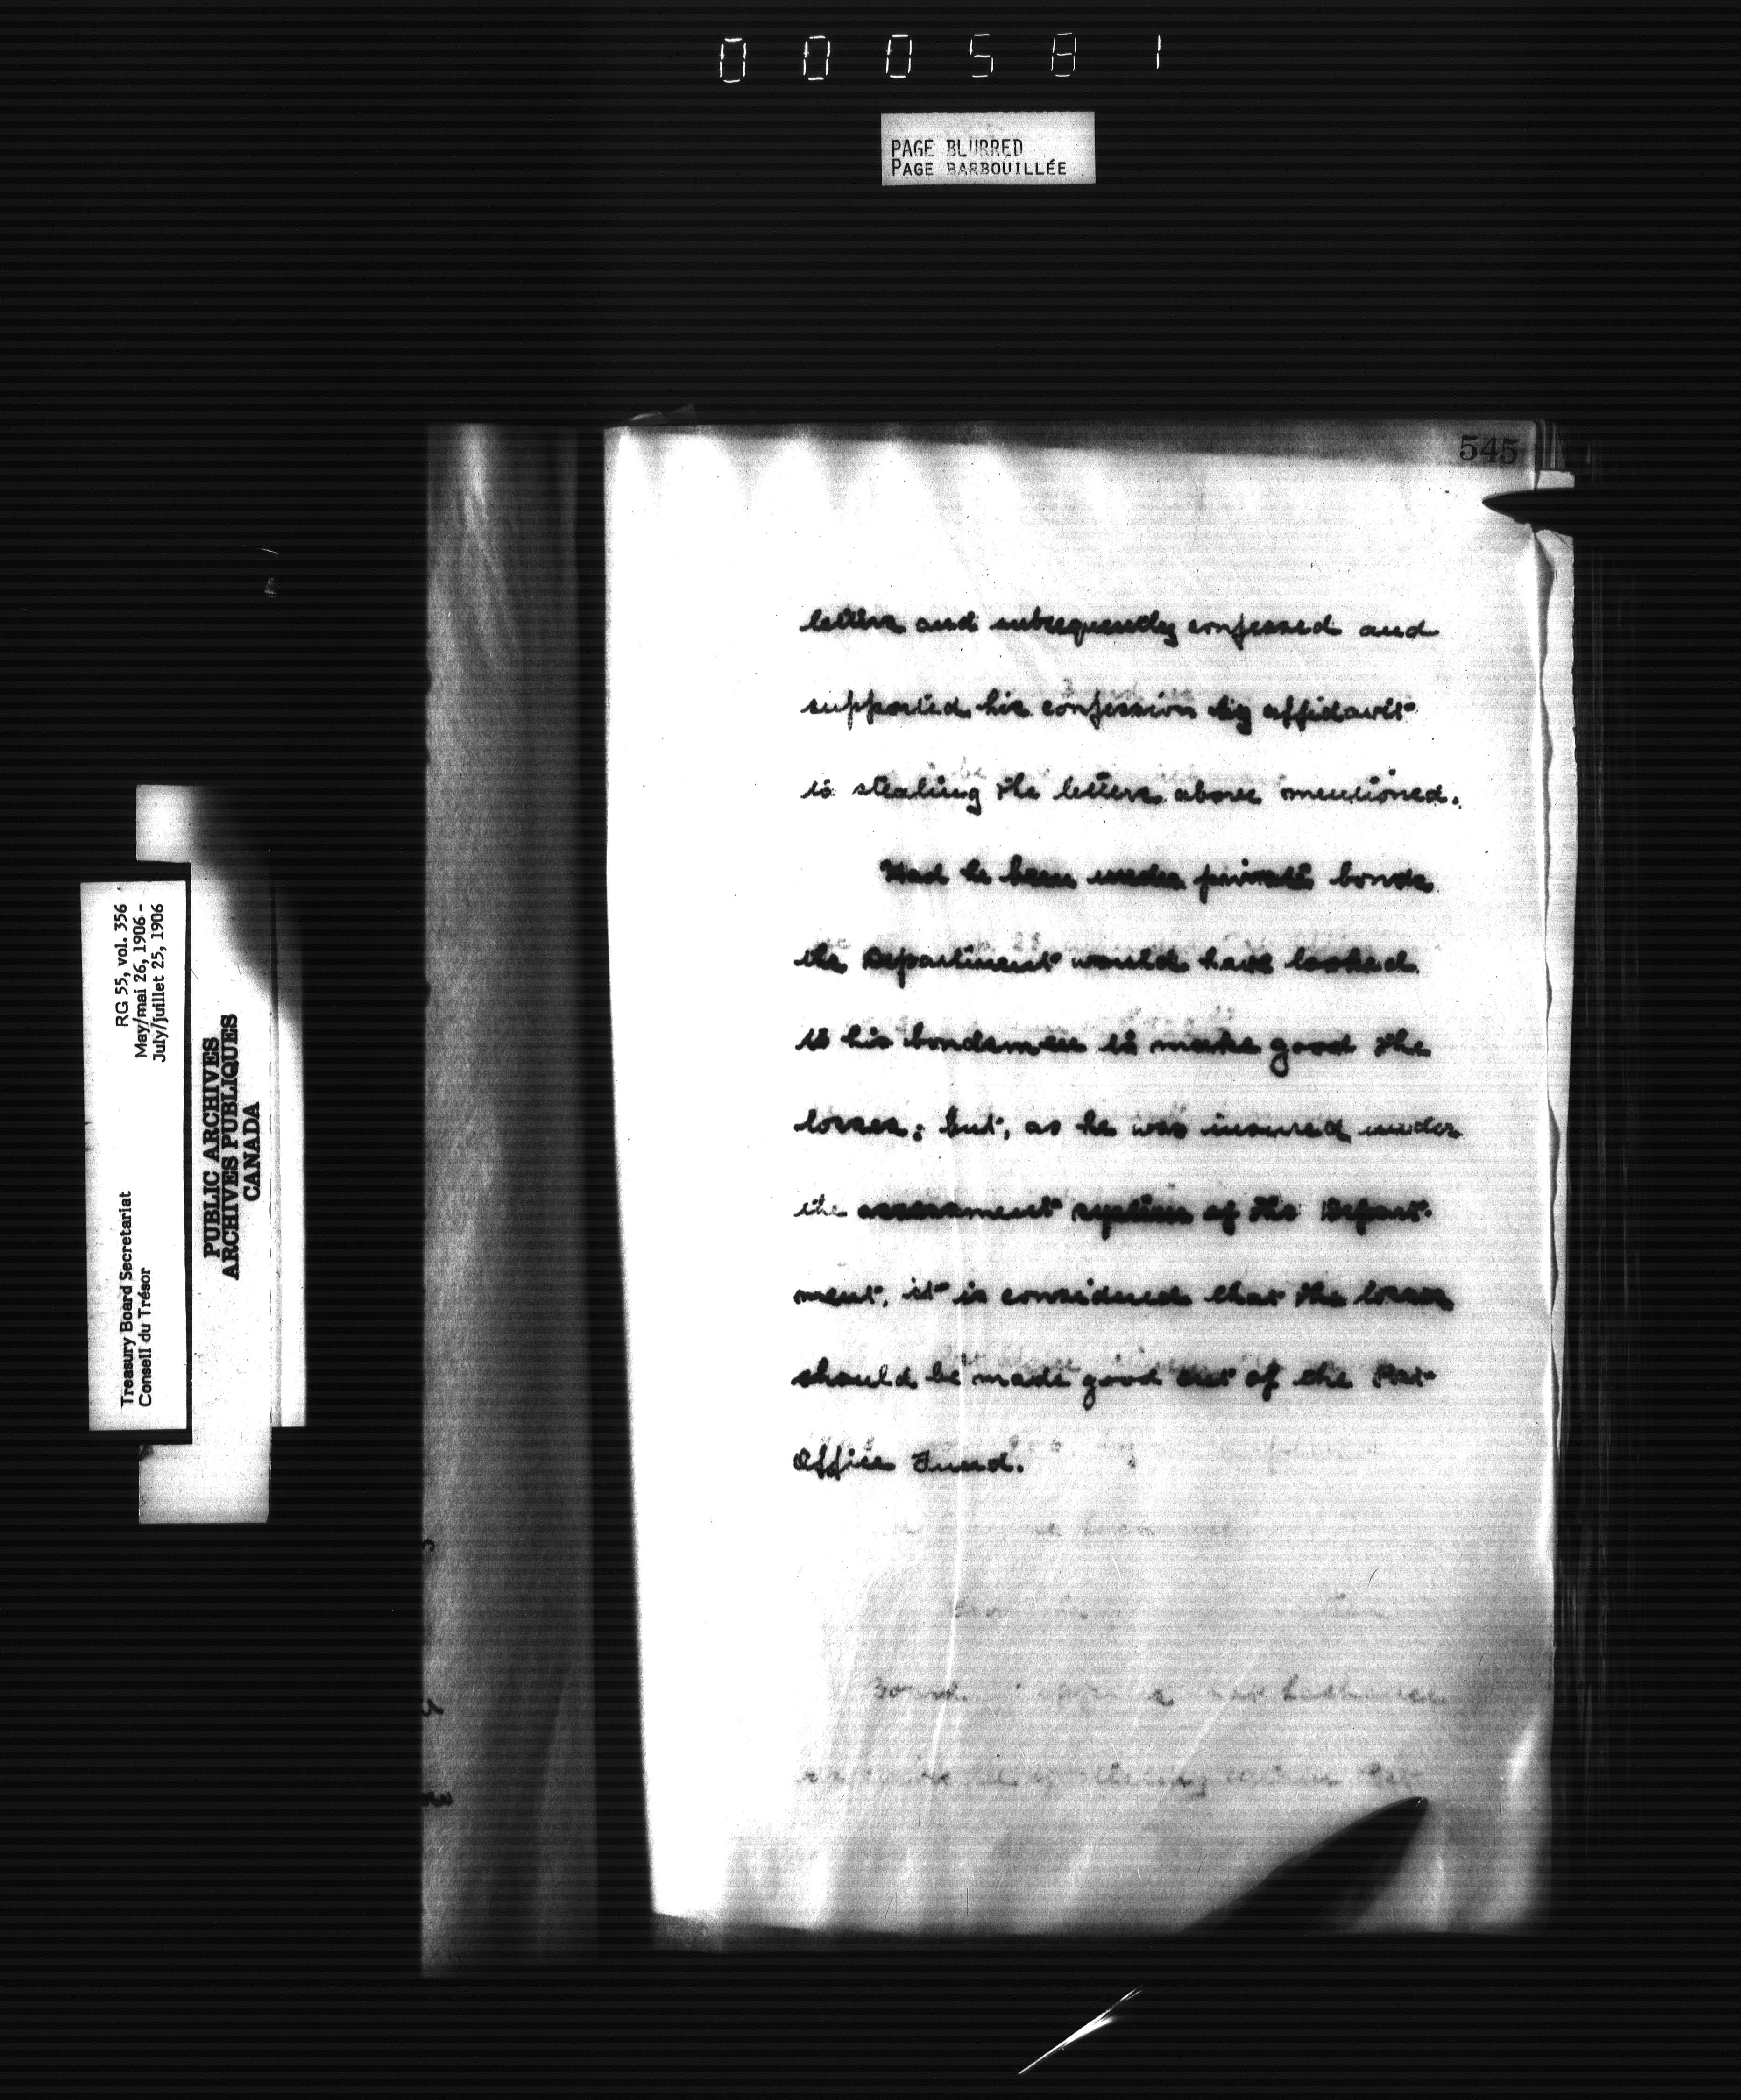 000581
PAGE BLURRED
PAGE BARBOUILLÉE
545
letters and subsequently confessed and
supported his confession by affidavit
to stealing the letters above mentioned.
Had he been under private bonds
the Department would have looked
to his bondsmen to make good the
losses; but, as he was insured under
the assessment system of the Depart-
ment, it is considered that the losses
should be made good out of the Post
Office Fund.
RG 55, vol. 356
May/mai 26, 1906 -
July/juillet 25, 1906
Treasury Board Secretariat
Conseil du Trésor
PUBLIC ARCHIVES
ARCHIVES PUBLIQUES
CANADA